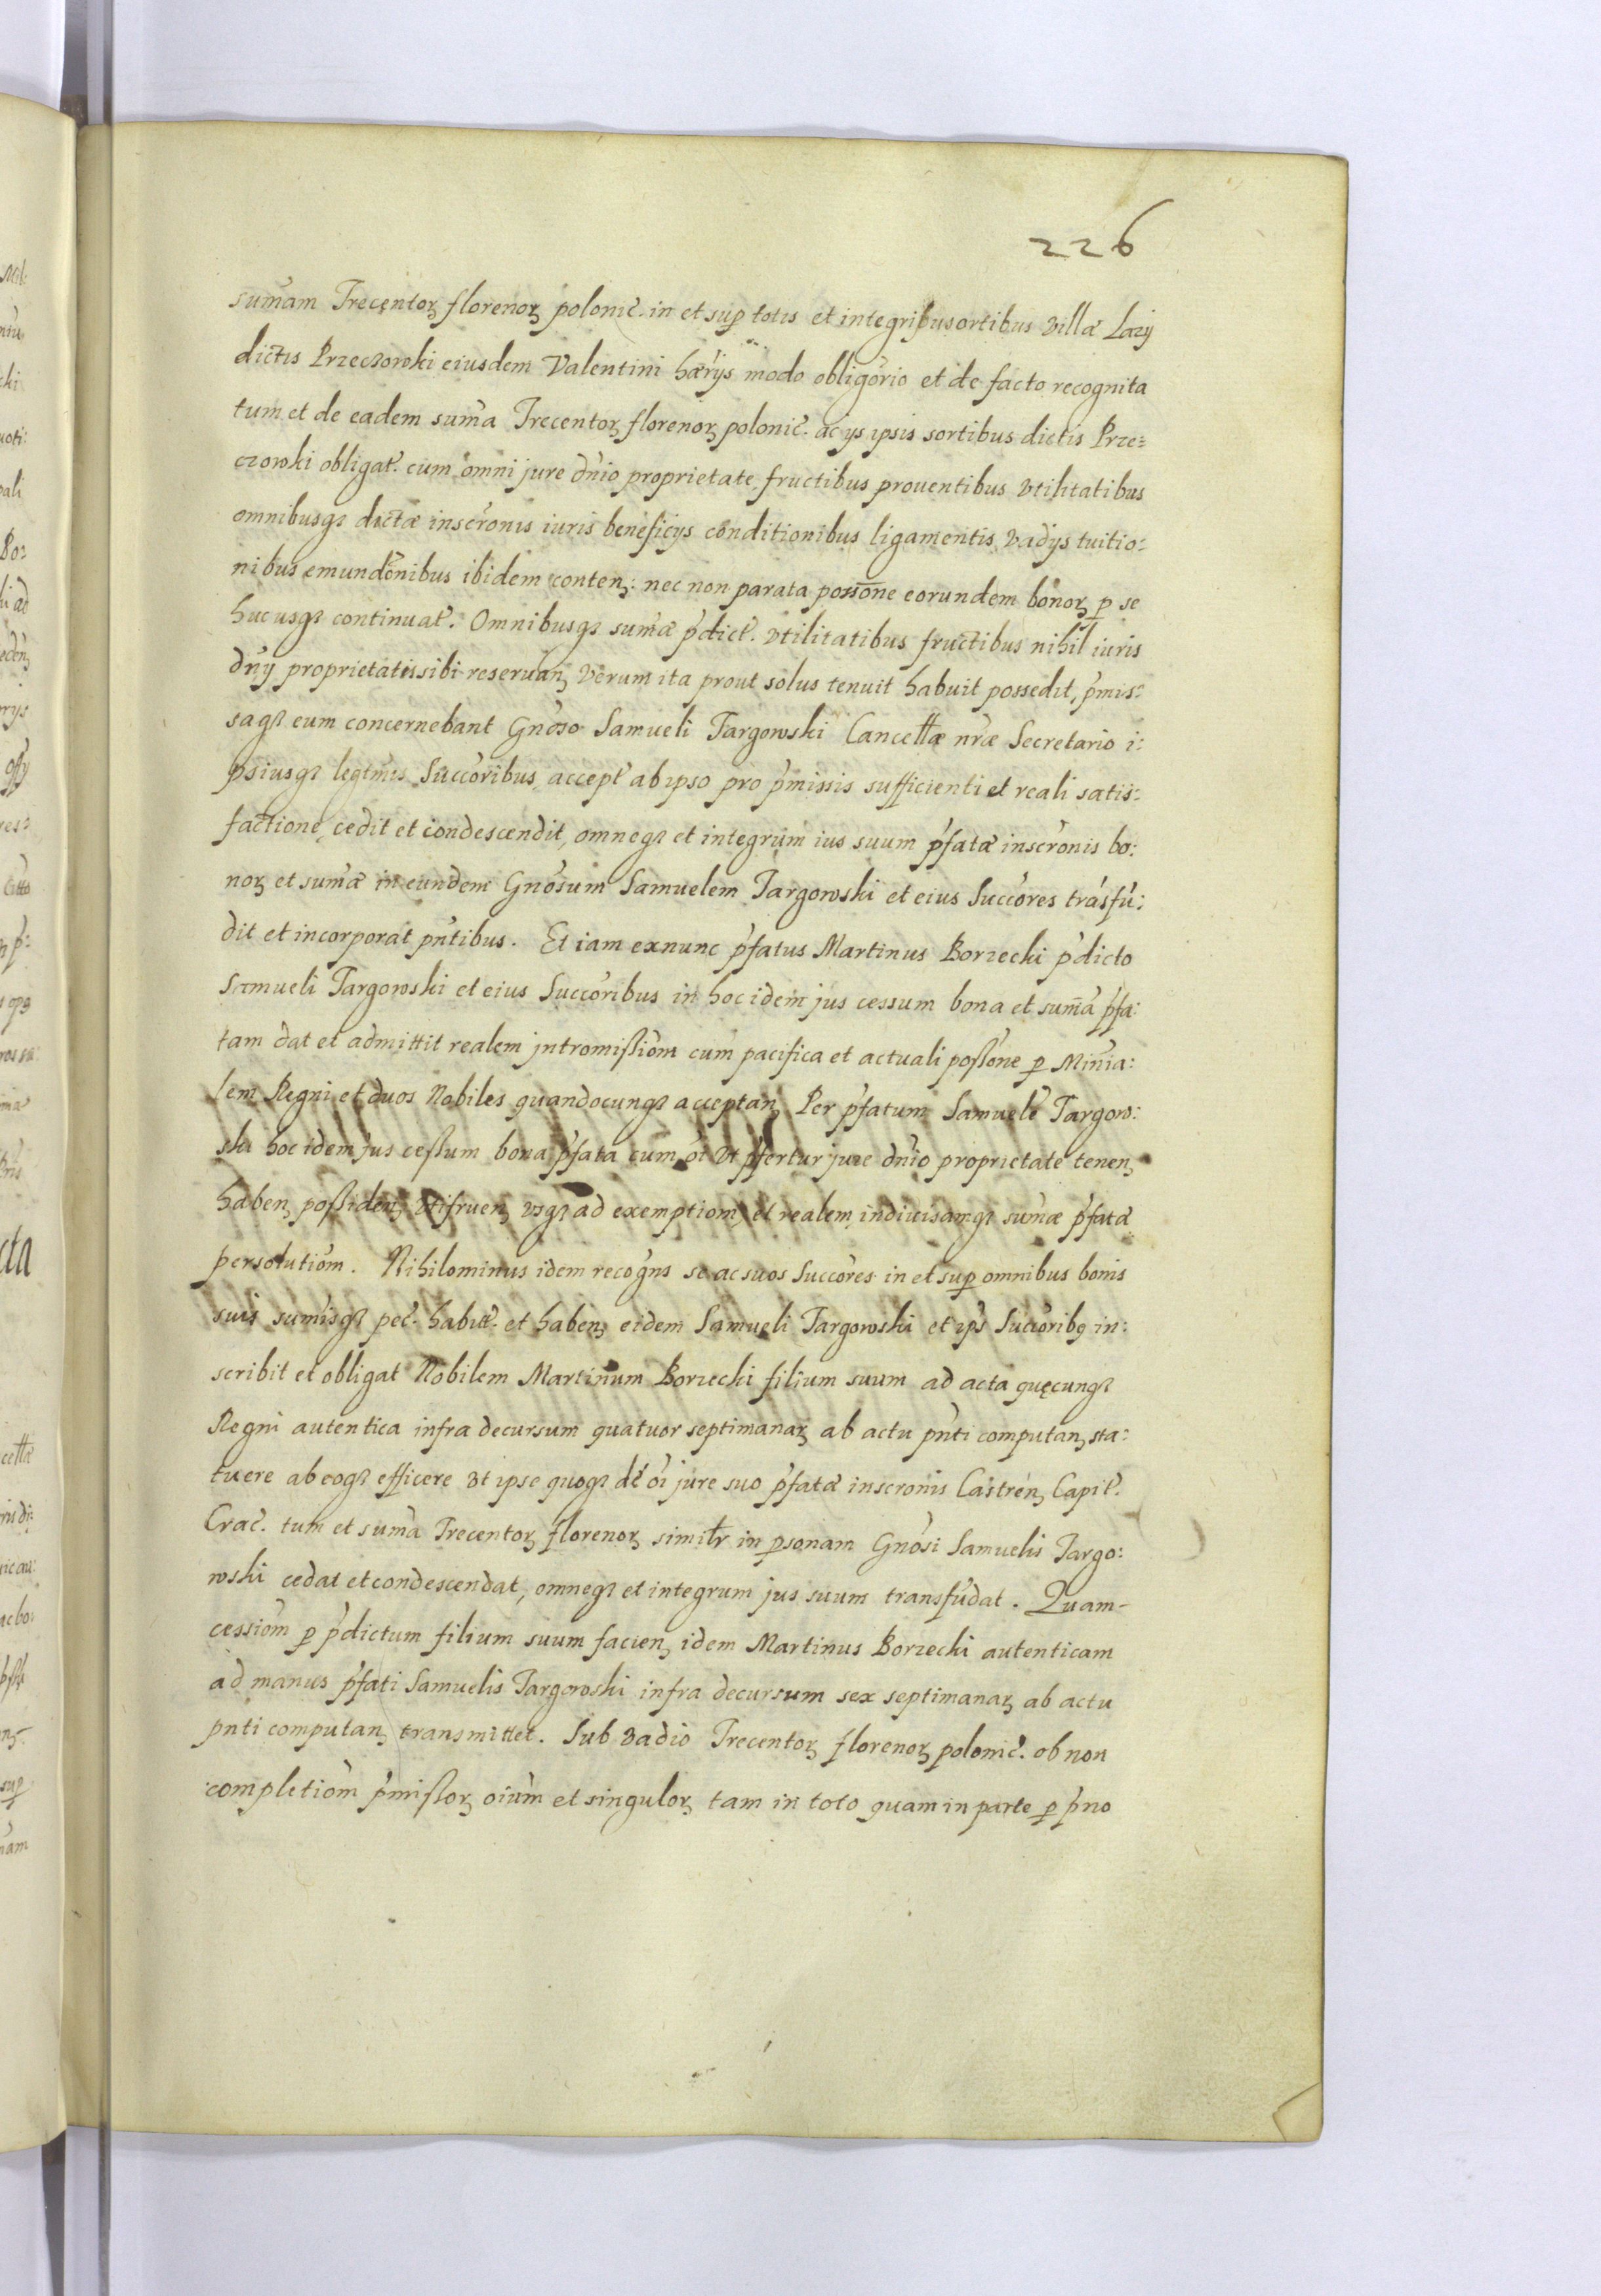 226
sum̃am Trecentoꝝ florenoꝝ polonic̃. in et suꝑ totis et integribusortibus villæ Lazy
dictis Przeczowski eiusdem Valentini hærijs modo obligõrio et de facto recognita
tum et de eadem sum̃a Trecentoꝝ florenoꝝ polonic̃. ac ijs ipsis sortibus dictis Prze=
czowski obligat̃. cum omni jure dñio proprietate fructibus prouentibus vtilitatibus
omnibusqꝫ dictæ inscrõnis iuris beneficijs conditionibus ligamentis vadijs tuitio:
nibus emundõnibus ibidem contenꝫ: nec non parata possõne eorundem bonoꝝ ꝑ se
hucusqꝫ continuat̃. Omnibusqꝫ sum̃æ p̃dict̃. vtilitatibus fructibus nihil iuris
dñij proprietatissibi reseruanꝫ verum ita prout solus tenuit habuit possedit, p̃mis:
saqꝫ eum concernebant Gñoso Samueli Targowski Cancellæ nr̃æ Secretario i:
psiusqꝫ legtm̃is Succõribus, accept̃ ab ipso pro p̃missis sufficienti et reali satis:
factione, cedit et condescendit, omneqꝫ et integrum ius suum p̃fatæ inscrõnis bo:
noꝝ et sum̃æ in eundem Gñosum Samuelem Targowski et eius Succõres trãsfũ:
dit et incorporat pñtibus. Et iam exnunc p̃fatus Martinus Borzecki p̃dicto
Samueli Targowski et eius Succõribus in hoc idem jus cessum bona et sum̃ã p̃fa:
tam dat et admittit realem jntromißiõm cum pacifica et actuali poßõne ꝑ Minĩa:
lem Regni et duos Nobiles quandocunqꝫ acceptanꝫ Per p̃fatum Samuelẽ Targow:
ski hoc idem jus ceßum bona p̃fata cum oĩ vt p̃fertur jure dñio proprietate tenenꝫ
habenꝫ poßidenꝫ vtifruenꝫ vsqꝫ ad exemptiõm et realem indiuisamqꝫ sum̃æ p̃fatæ
persolutiõm. Nihilominus idem recogñs se ac suos Succõres in et suꝑ omnibus bonis
suis sum̃isqꝫ pec̃. habit̃. et habenꝫ eidem Samueli Targowski et ip̃s Succõribꝰ in:
scribit et obligat Nobilem Martinum Borzecki filium suum ad acta quęcunqꝫ
Regni autentica infra decursum quatuor septimanaꝝ ab actu pñti computanꝫ sta:
tuere ab eoqꝫ efficere vt ipse quoqꝫ de oĩ jure suo p̃fatæ inscrõnis Castrenꝫ Capit̃.
Crac̃. tum et sum̃a Trecentoꝝ florenoꝝ similr̃ in ꝑsonam Gñosi Samuelis Targo:
wski cedat et condescendat, omneqꝫ et integrum jus suum transfũdat. Quam-
cessiõm ꝑ p̃dictum filium suum facienꝫ idem Martinus Borzecki autenticam
ad manus p̃fati Samuelis Targowski infra decursum sex septimanaꝝ ab actu
pñti computanꝫ transmittet. Sub vadio Trecentoꝝ florenoꝝ polonic̃. ob non
completiõm p̃mißoꝝ oĩum et singuloꝝ tam in toto quam in parte ꝑ p̃no